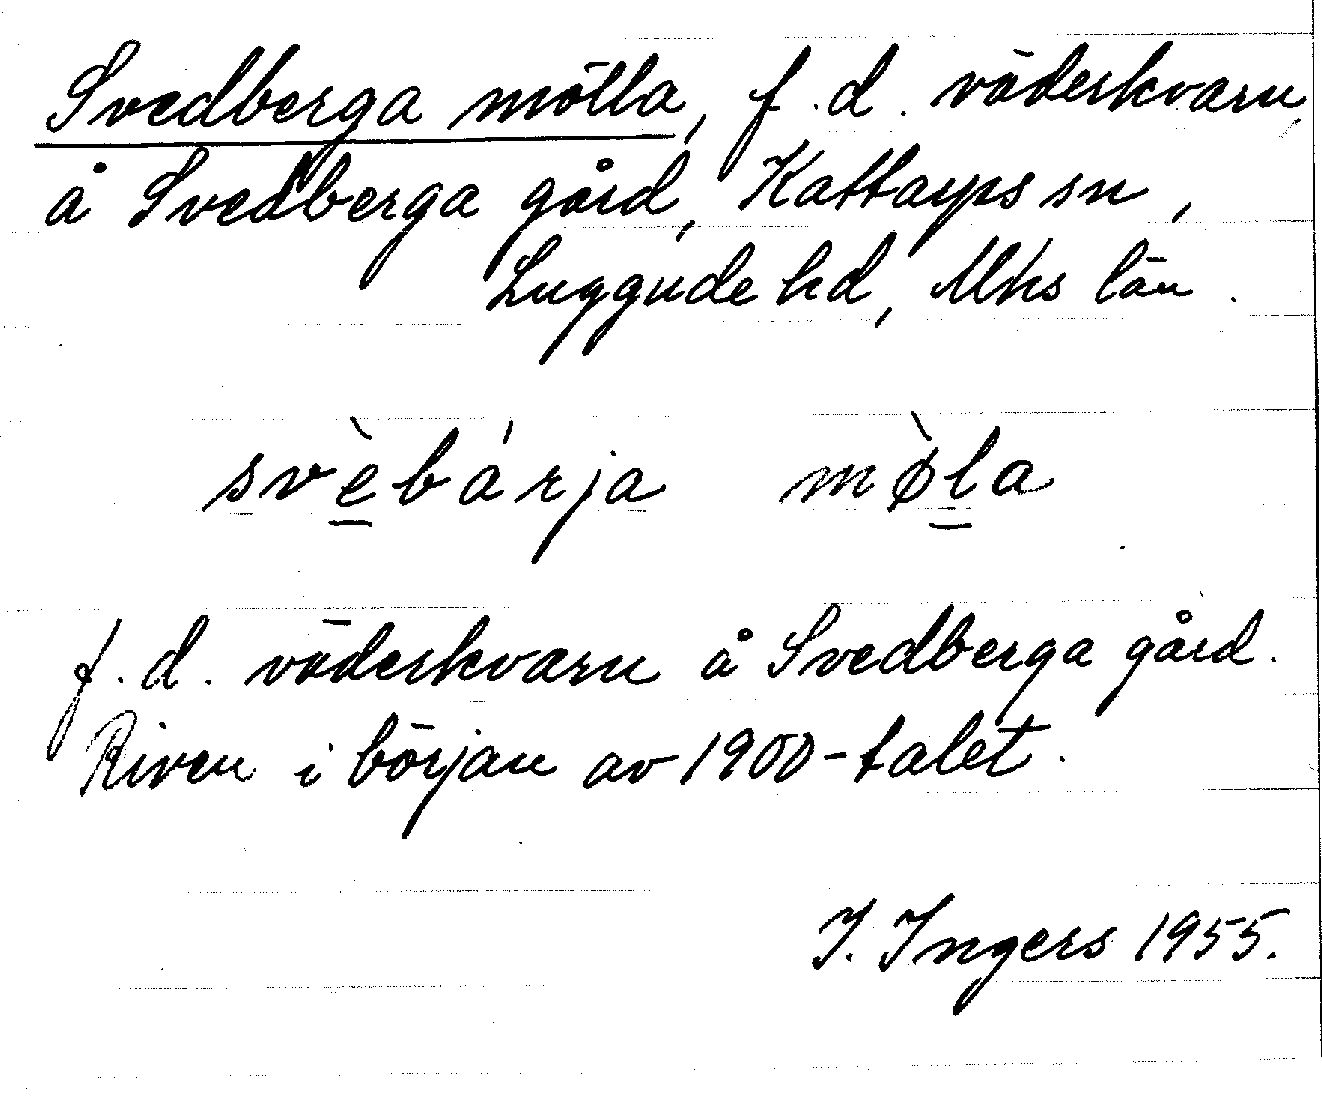 Svedberga mölla, f.d. väderkvarn,
å Svedberga gård, Kattarps sn,
Luggude hd, Mhs län.
svè̱bárja mø̀ḻa
f.d. väderkvarn å Svedberga gård.
Riven i början av 1900-talet.
I. Ingers 1955.